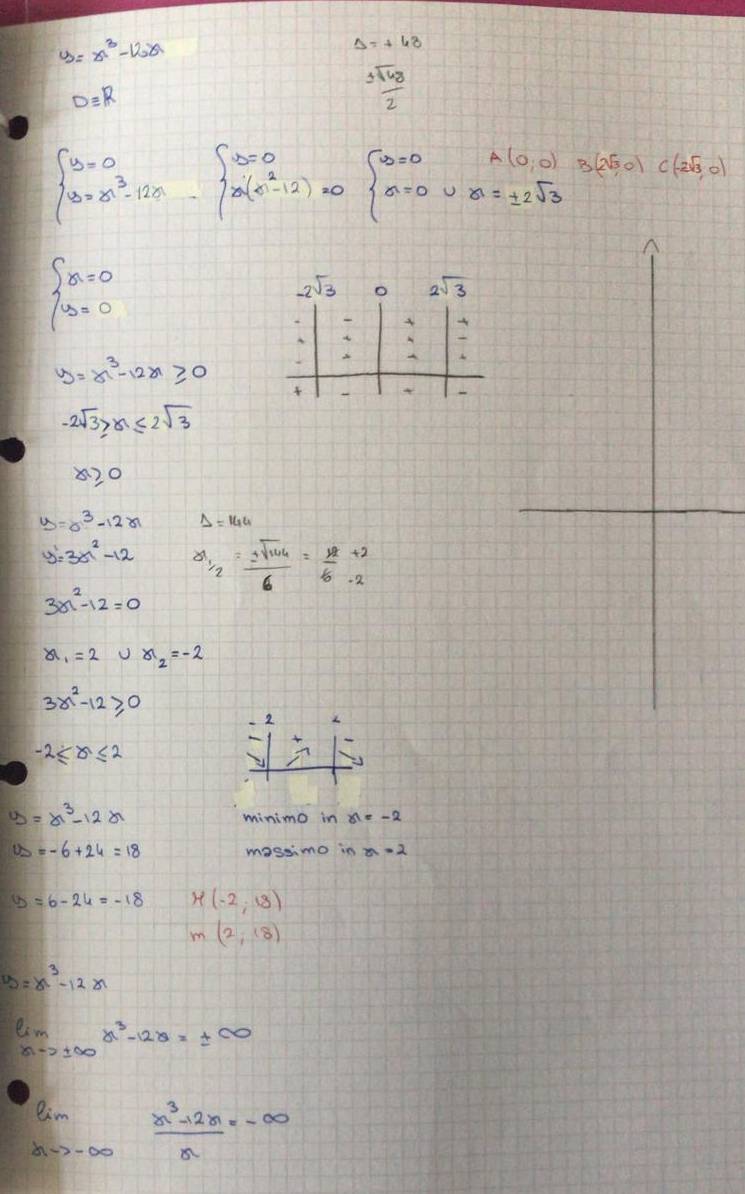 y = x³-12x
Δ = +48
±√48/2
D≡ℝ
{y=0 {y=0 {y=0 A(0;0) B(2√3;0) C(-2√3;0)
{y=x³-12x {x(x²-12)=0 {x=0 ∪ x=±2√3
{x=0
{y=0
-2√3 0 2√3
- - + +
+ + + -
- + + +
+ - + -
y=x³-12x ≥0
-2√3≥x≤2√3
x≥0
y=x³-12x Δ=144
y'=3x²-12 x₁/₂ = ±√144/6 = 12/6 +2 -2
3x²-12=0
x₁=2 ∪ x₂=-2
3x²-12≥0
-2 2
- + -
-2≤x≤2
y=x³-12x minimo in x=-2
y=-6+24=18 massimo in x=2
y=6-24=-18 M(-2; 18)
m (2; 18)
y=x³-12x
lim x³-12x = ±∞
x->±∞
lim x³-12x/x = -∞
x->-∞